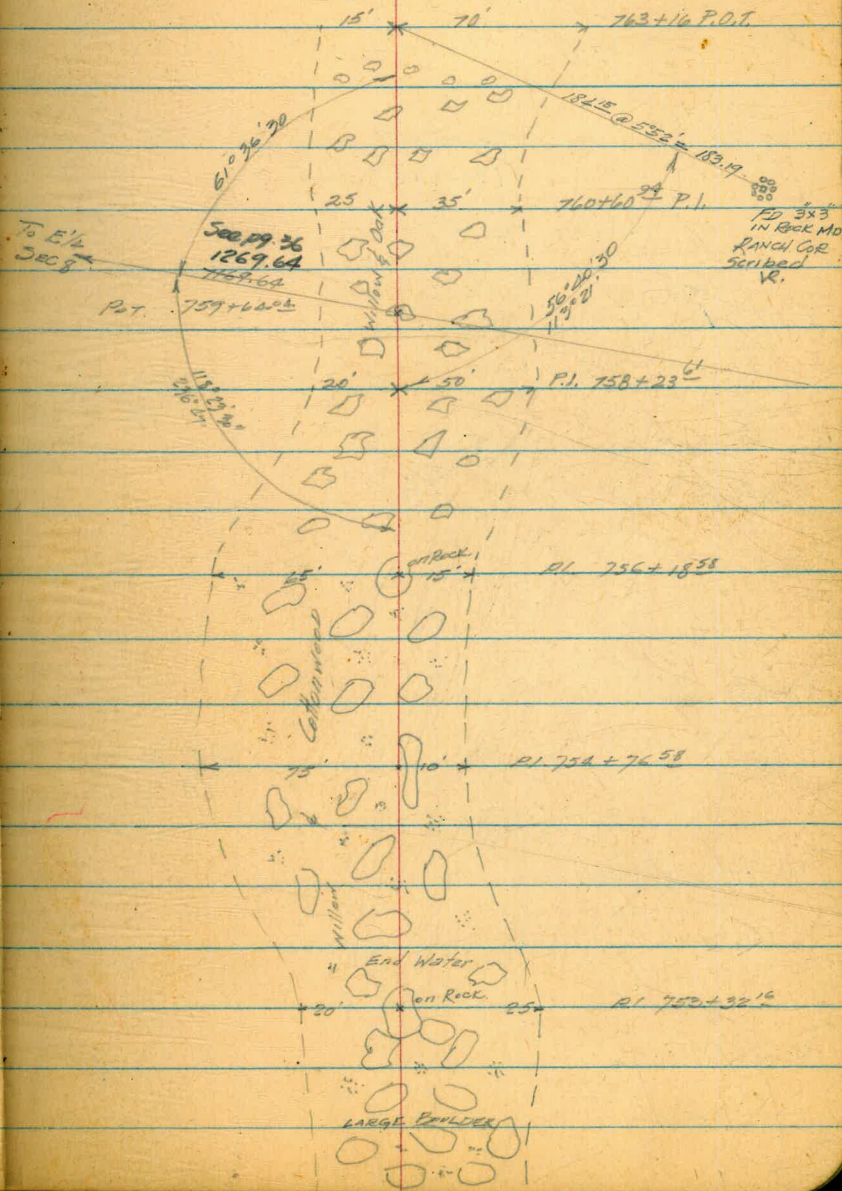 15' 70' 763+16 P.O.T.
184.15 @ 5°52' = 183.19
61° 36' 30
25 35' 760+60 94 P.I.
FD 3"x3"
IN ROCK MD
RANCH COR
Scribed
To E 1/2
SEC 8
See pg. 36
1269.64
1169.64
Willow & Oak
P.O.T. 759+64 04
56° 40' 30
113° 21'
20' 50' P.I. 758+23 61
118° 23' 30"
on Rock
65' 15' P.I. 756+18 58
Cottonwood
75' 10' P.I. 754+76 58
&
Willow
End Water
on Rock
20' 25 P.I. 753+32 16
LARGE BOULDER